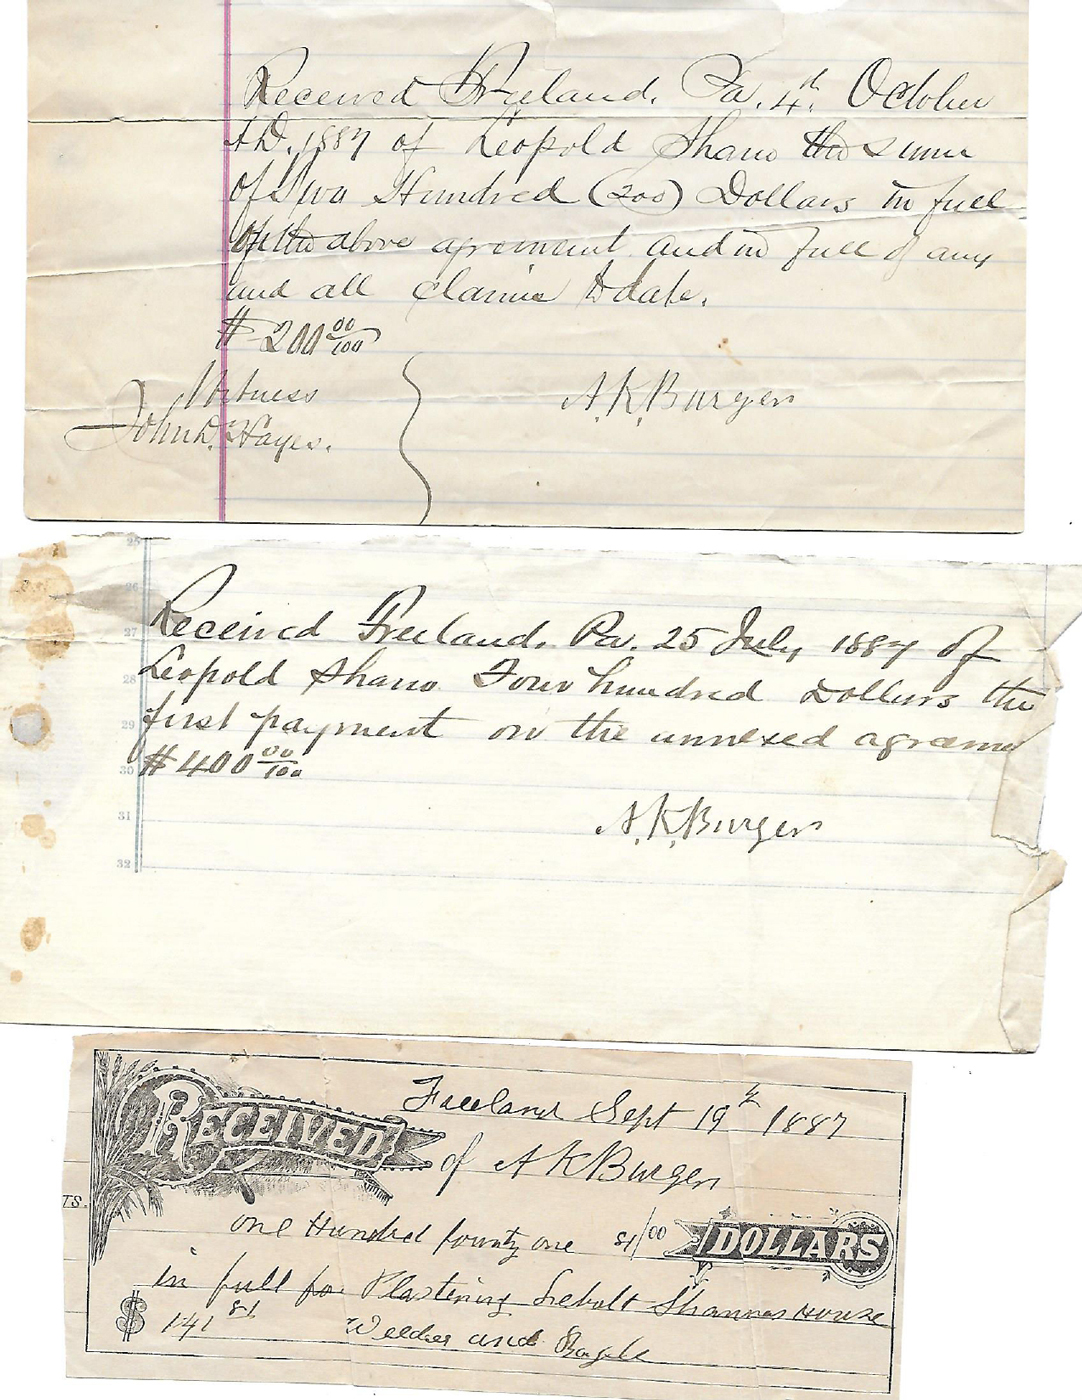 Received Freeland, Pa. 4th October
A.D. 1887 of Leopold Shano the sum
of Two Hundred (200) Dollars in full
of the above agreement and in full of any
and all claims to date.
$ 200 00/100
Witness
John D. Hayes.
A. K. Burger
25
26
27
28
29
30
31
32
Received Freeland, Pa. 25 July, 1887 of
Leopold Shano Four hundred Dollars the
first payment on the annexed agreeme
# 400 00/100
A. K. Burger
RECEIVED
Freeland Sept 19th 1887
of A K Burger
TS.
one Hundred fourty one 81/00 DOLLARS
in full for Plastering Shannos House
$ 141 81
and